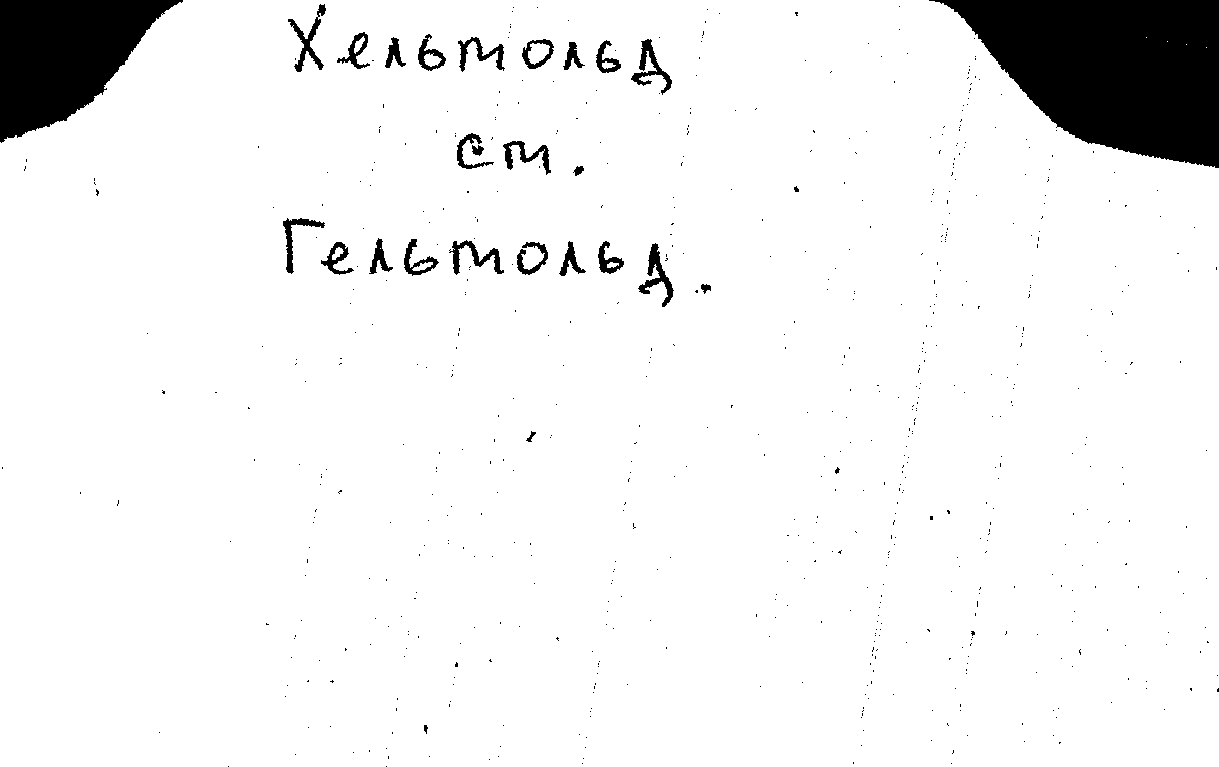 Хельтольд
ст.
Гельтольд.